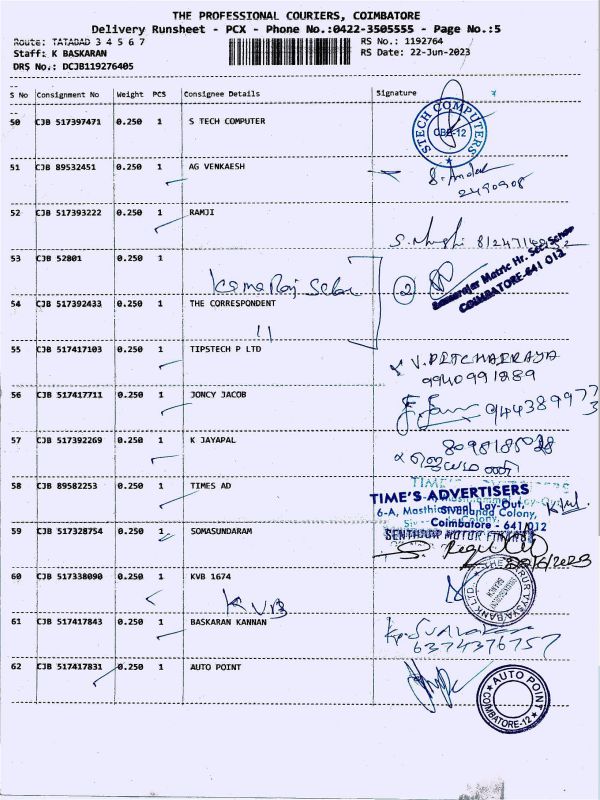 THE PROFESSIONAL COURIERS, COIMBATORE
Delivery Runsheet - PCX - Phone No.:0422-3505555 - Page No.:5
Route: TATABAD 3 4 5 6 7
RS No.: 1192764
Staff: K BASKARAN
RS Date: 22-Jun-2023
DRS No.: DCJB119276405
S No Consignment No Weight PCS Consignee Details Signature
50 CJB 517397471 0.250 1 S TECH COMPUTER
STECH COMPUTERS
CBE-12
51 CJB 89532451 0.250 1 AG VENKAESH
2490908
52 CJB 517393222 0.250 1 RAMJI
53 CJB 52801 0.250 1
2
Matric Hr. Sec. School
COIMBATORE-641 012
54 CJB 517392433 0.250 1 THE CORRESPONDENT
55 CJB 517417103 0.250 1 TIPSTECH P LTD
9940991889
56 CJB 517417711 0.250 1 JONCY JACOB
57 CJB 517392269 0.250 1 K JAYAPAL
58 CJB 89582253 0.250 1 TIMES AD
TIME'S ADVERTISERS
Coimbatore - 641 012
59 CJB 517328754 0.250 1 SOMASUNDARAM
SENTHUUP MOTOR FINANCE
60 CJB 517338090 0.250 1 KVB 1674
KVB
61 CJB 517417843 0.250 1 BASKARAN KANNAN
6374376757
62 CJB 517417831 0.250 1 AUTO POINT
AUTO POINT
COIMBATORE-12